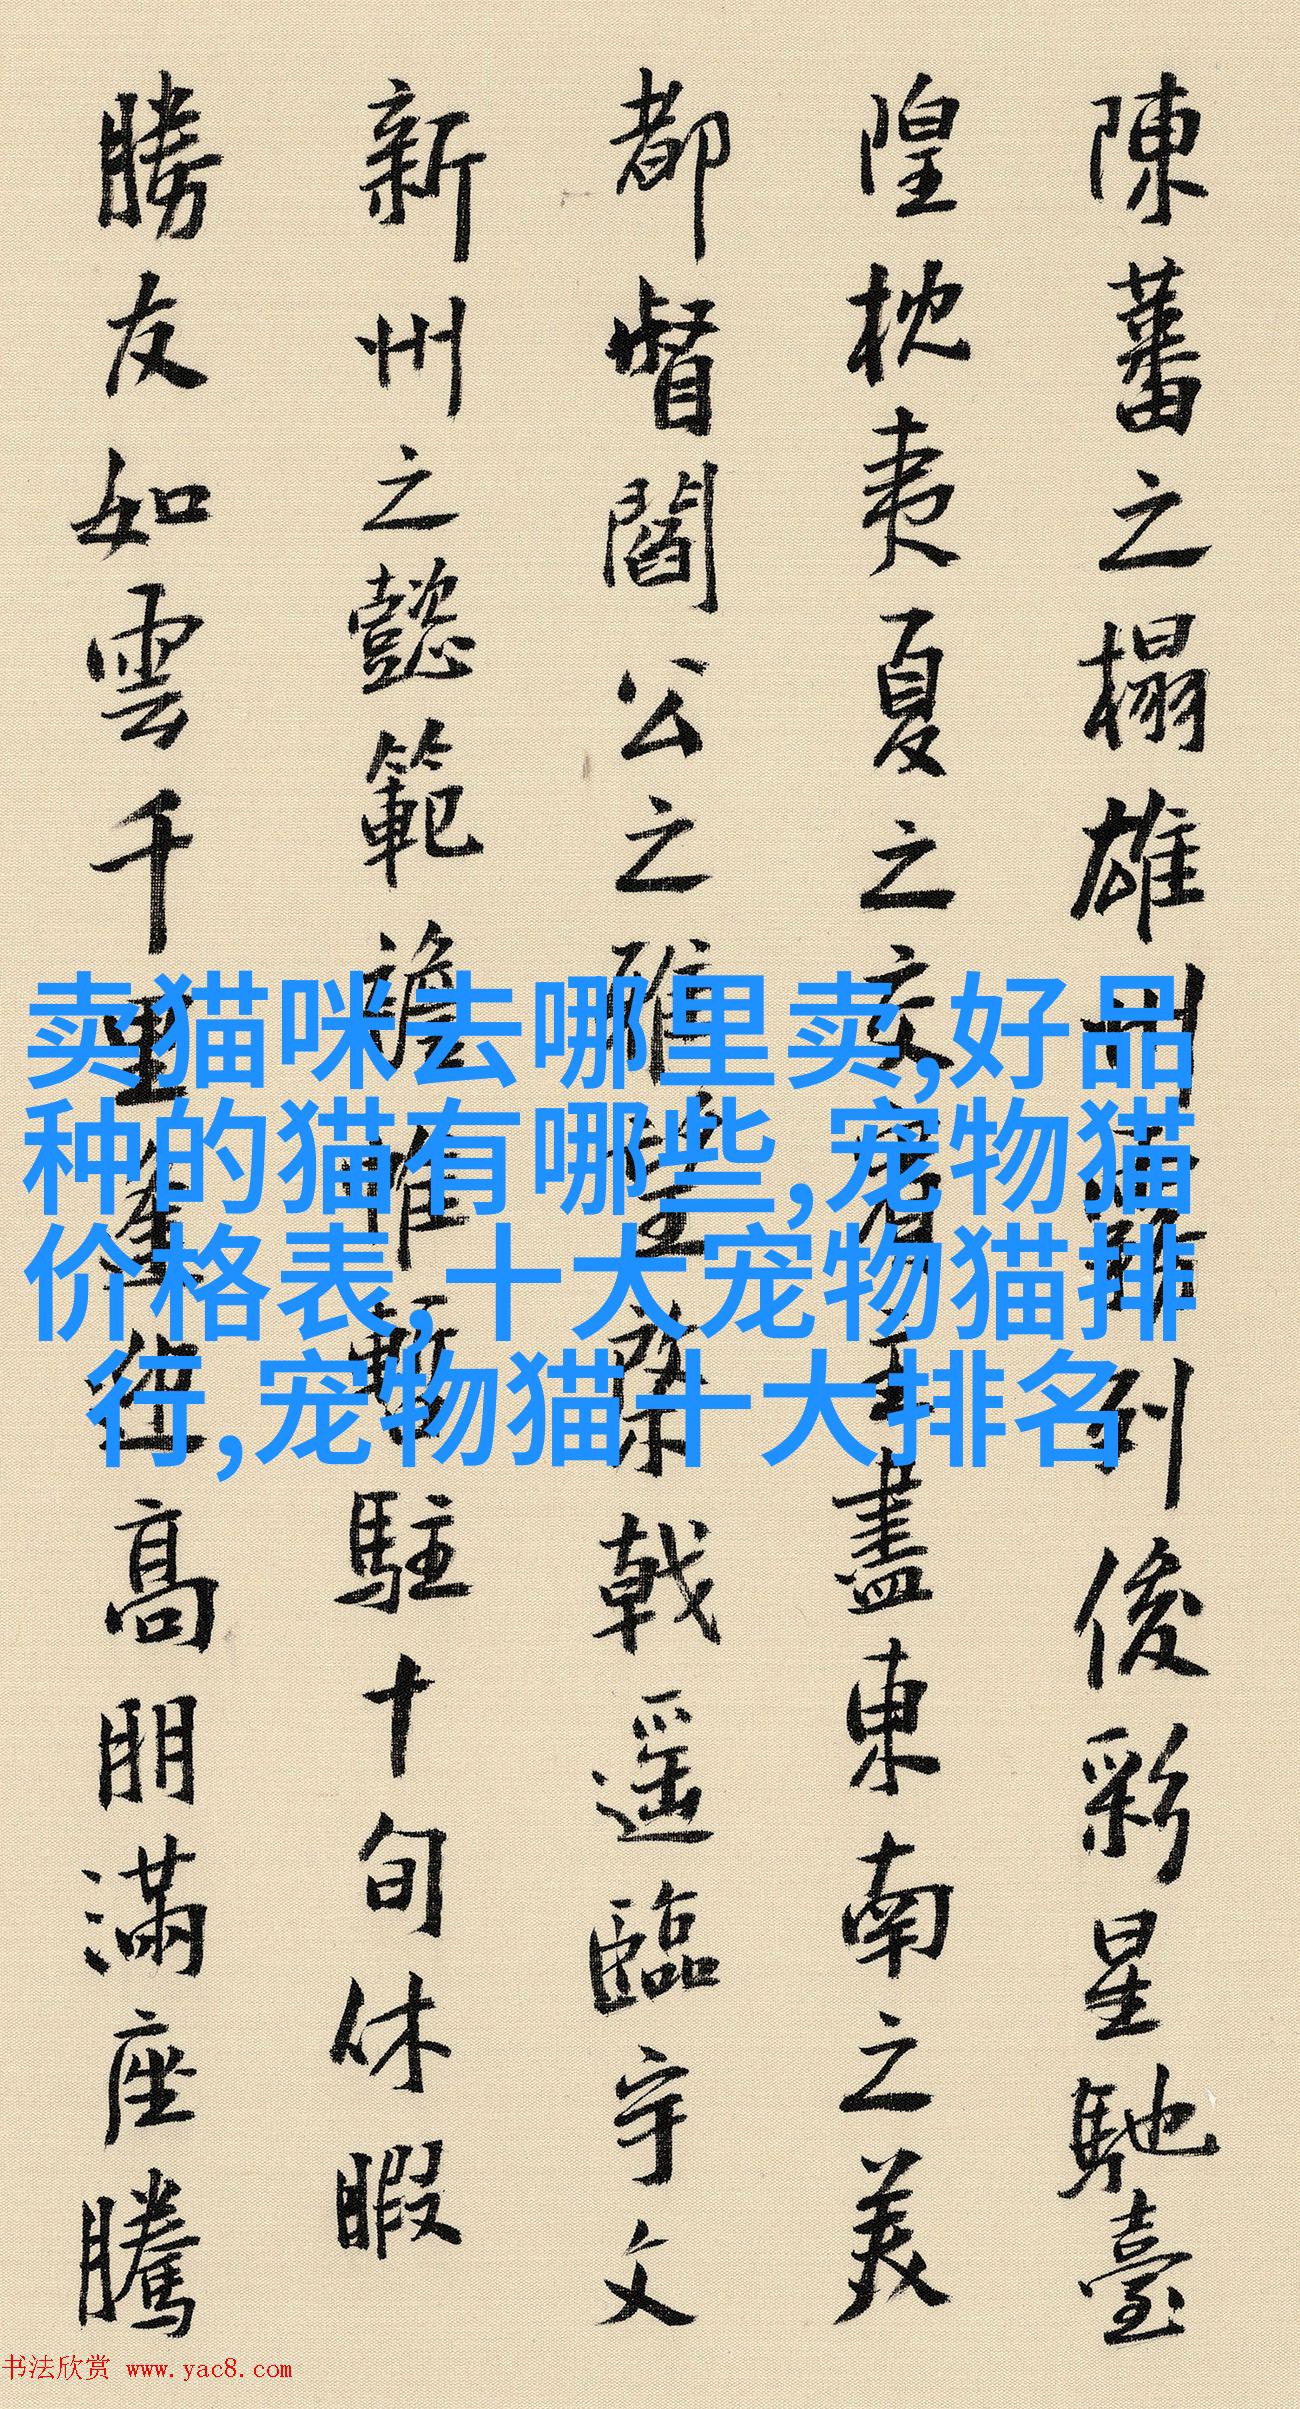 陳蕃之榻雄州霧列俊彩星馳臺
隍枕夷夏之交賓主盡東南之美
都督閻公之雅望棨戟遥臨宇文
新州之懿範襜帷暫駐十旬休暇
勝友如雲千里逢迎高朋滿座騰
卖猫咪去哪里卖,好品
种的猫有哪些,宠物猫
价格表,十大宠物猫排
行,宠物猫十大排名
书法欣赏 www.yac8.com